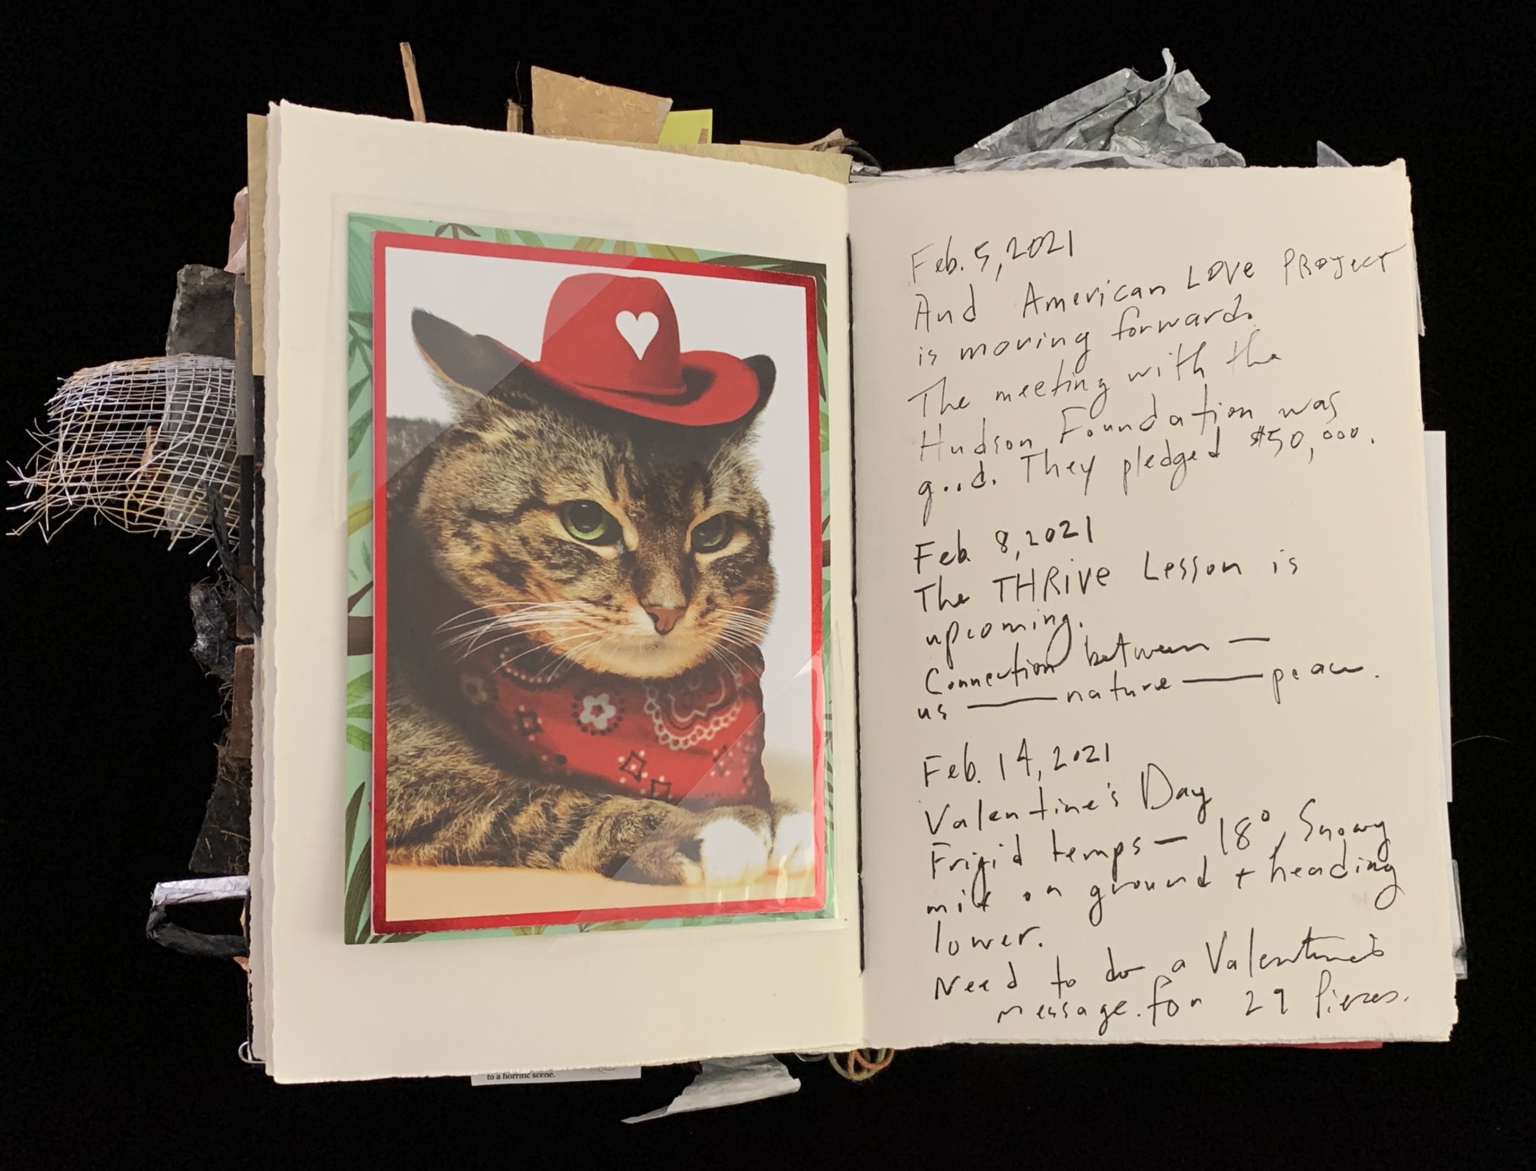 Feb. 5, 2021
And American LOVE PROJECT
is moving forward.
The meeting with the
Hudson Foundation was
good. They pledged $50,000.
Feb. 8, 2021
The THRIVE Lesson is
upcoming.
Connection between —
us — nature — peace.
Feb. 14, 2021
Valentine's Day
Frigid temps — 18°, Snowy
mix on ground + heading
lower.
Need to do a Valentine's
message for 29 Pieces.
to a horrific scene.